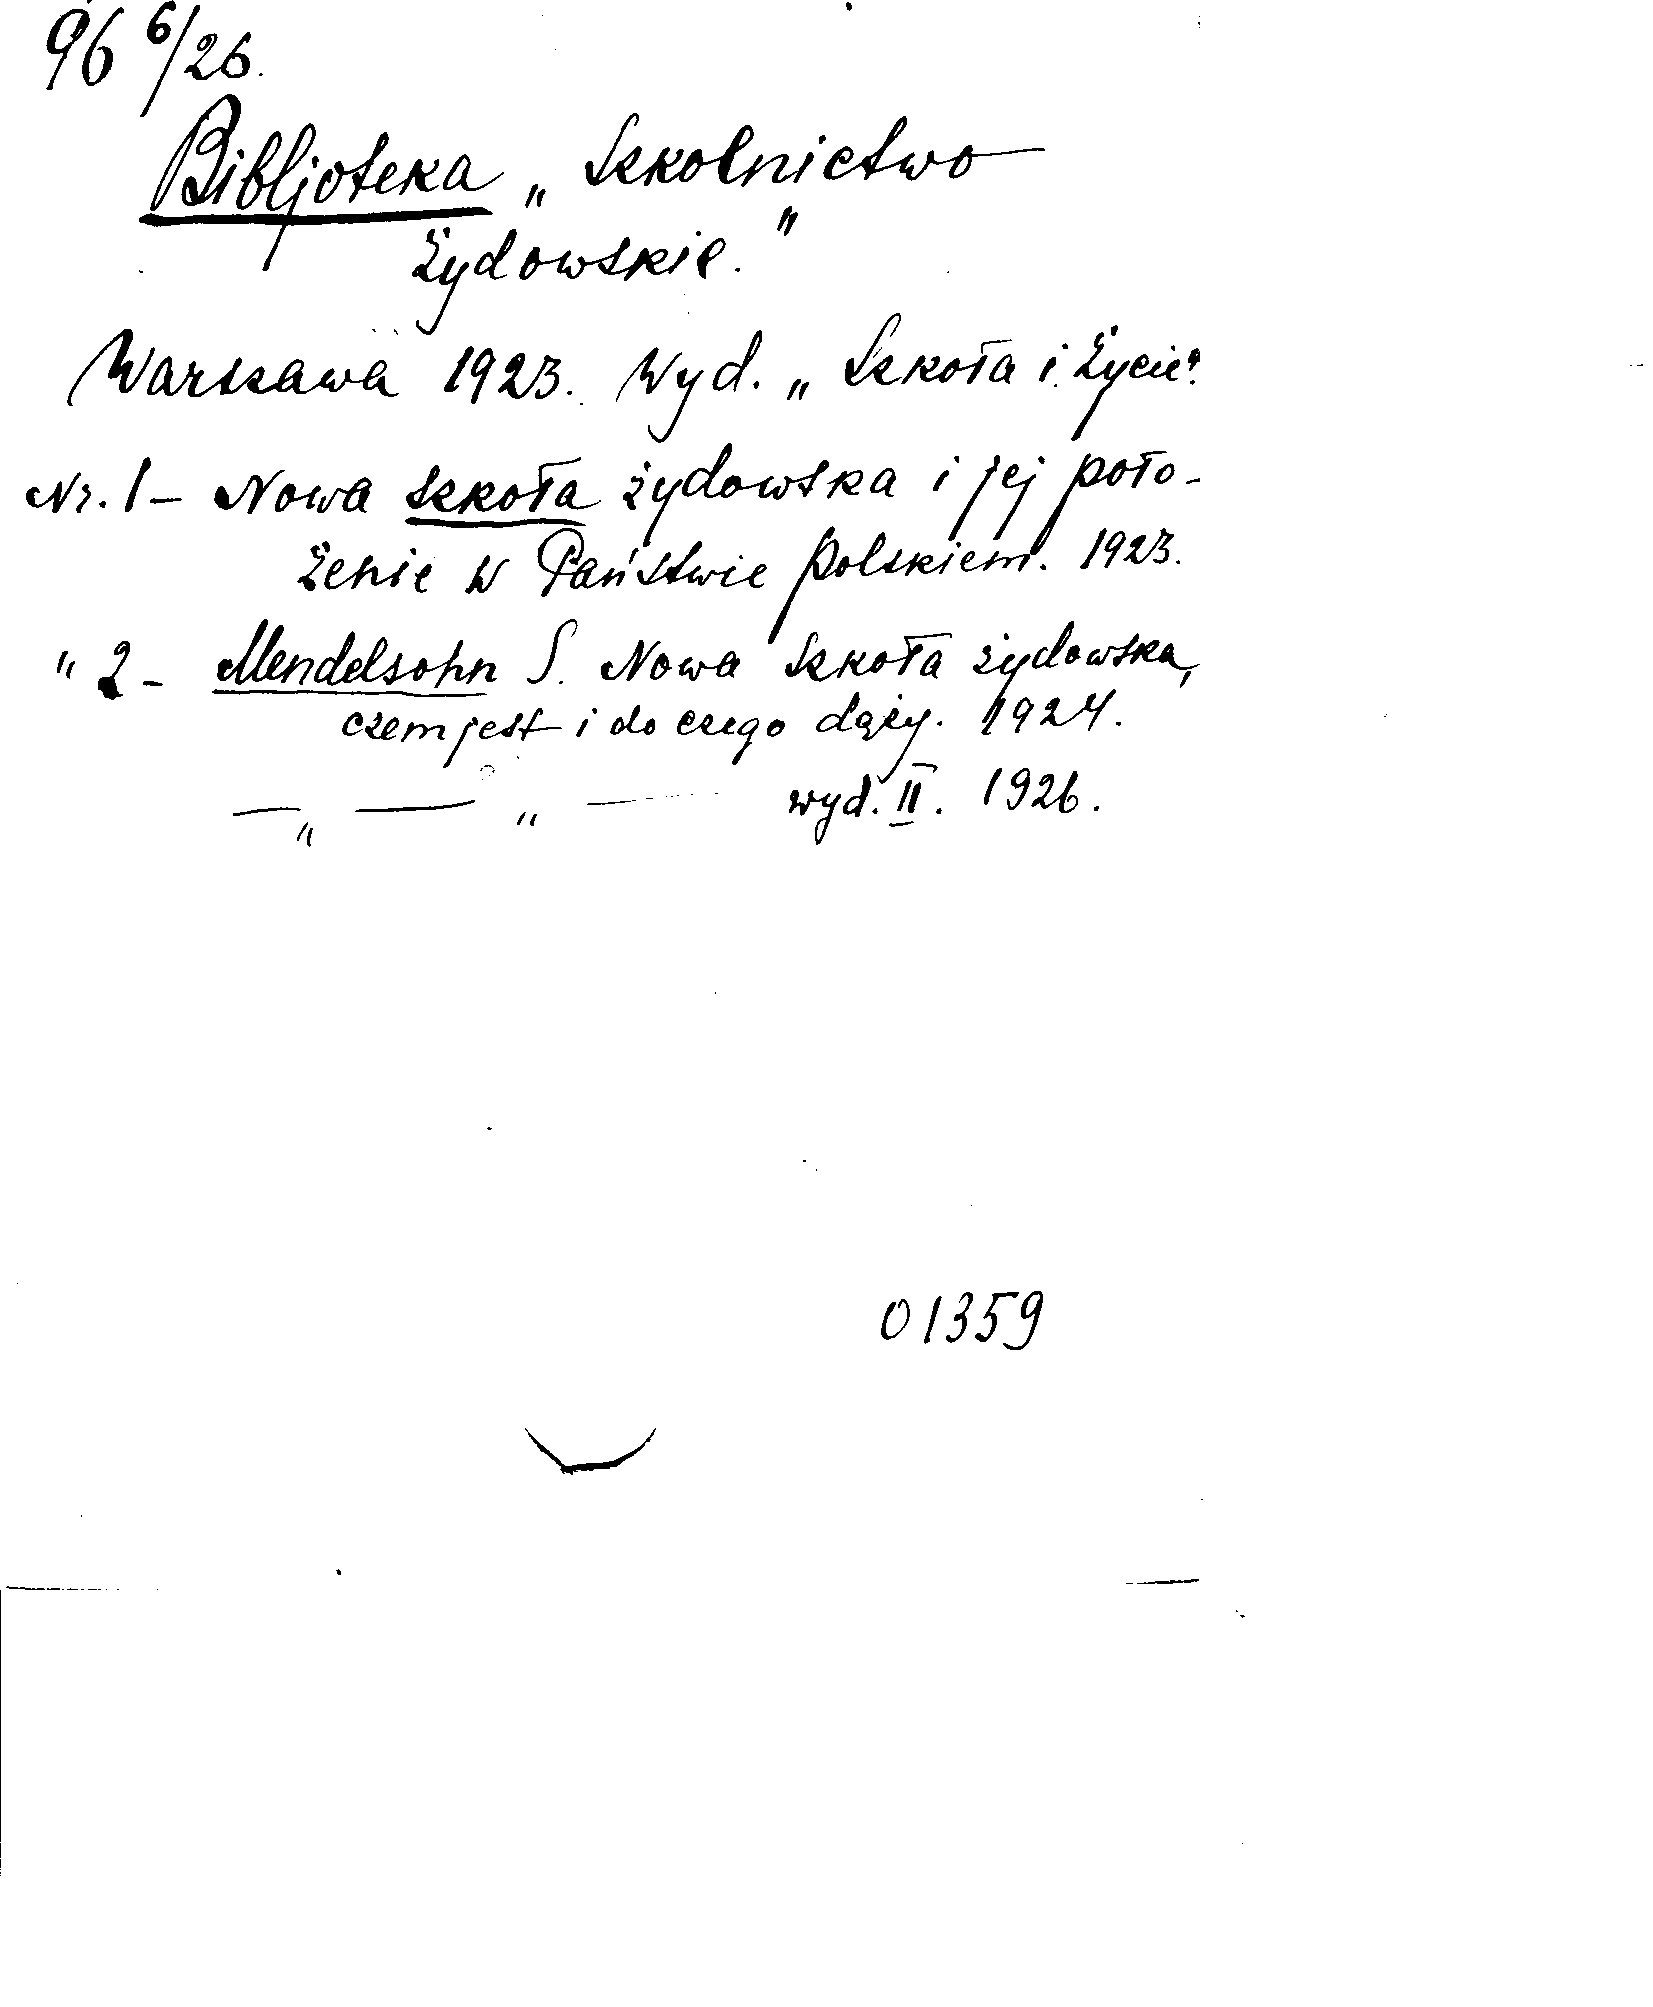 96 6/26.
Bibljoteka „Szkolnictwo
Żydowskie."
Warszawa 1923. Wyd. „Szkoła i Życie"
Nr. 1 — Nowa szkoła żydowska i jej poło-
żenie w Państwie Polskiem. 1923.
" 2 — Mendelsohn S. Nowa Szkoła żydowska,
czem jest i do czego dąży. 1924.
— „ — „ — wyd. II. 1926.
01359